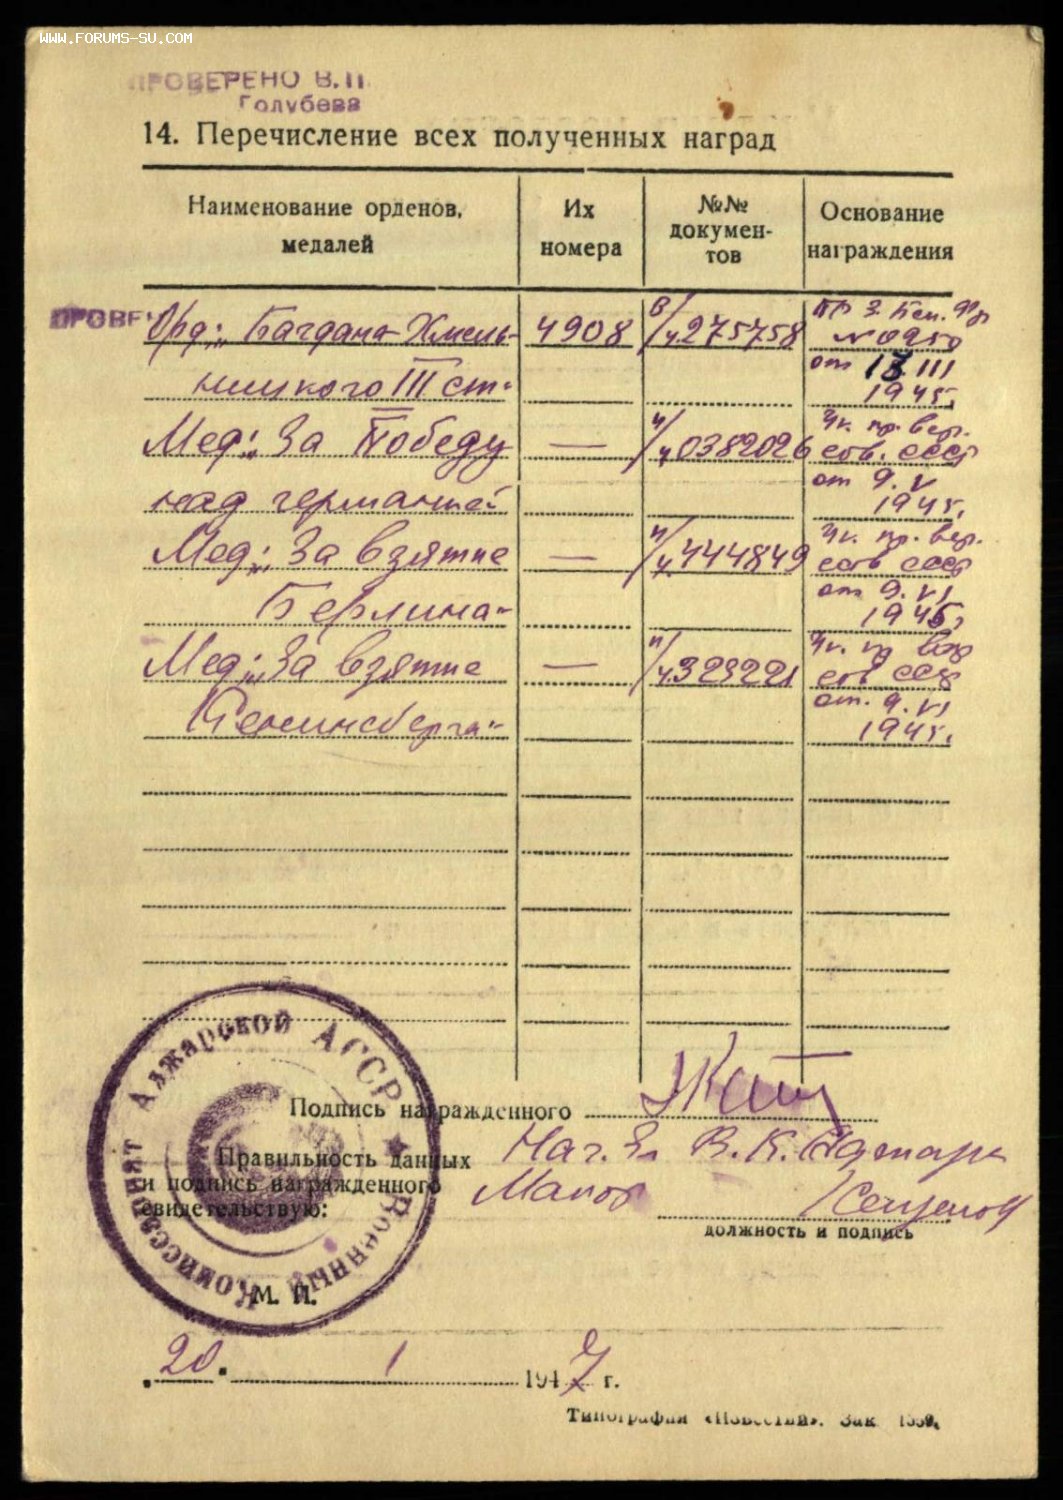 WWW.FORUMS-SU.COM
ПРОВЕРЕНО В.П.
Голубева
14. Перечисление всех полученных наград
Наименование орденов, медалей
Их номера
№№ документов
Основание награждения
ПРОВЕ
Орд: „Багдана Хмель- 4908 в/ч 275758 Пр 3. Бел. Фр
№ 0950
ницкого III ст." от 13 III
1945.
Мед: „За Победу — н/ч 0382026 Ук. пр. вер.
сов. ссср
над германией" от 9. V
1945.
Мед: „За взятие — н/ч 444849 Ук. пр. вер.
сов ссср
Берлина" от 9. VI
1945.
Мед: „За взятие — н/ч 323221 Ук. пр вер
сов ссср
Кенинсберга" от. 9. VI
1945.
Подпись награжденного
Правильность данных Нач. В. К.
и подпись награжденного Маиор
свидетельствую:
должность и подпись
Военный Комиссариат Аджарской АССР
М. П.
„20" 1 1947 г.
Типография «Известий». Зак. 1559.